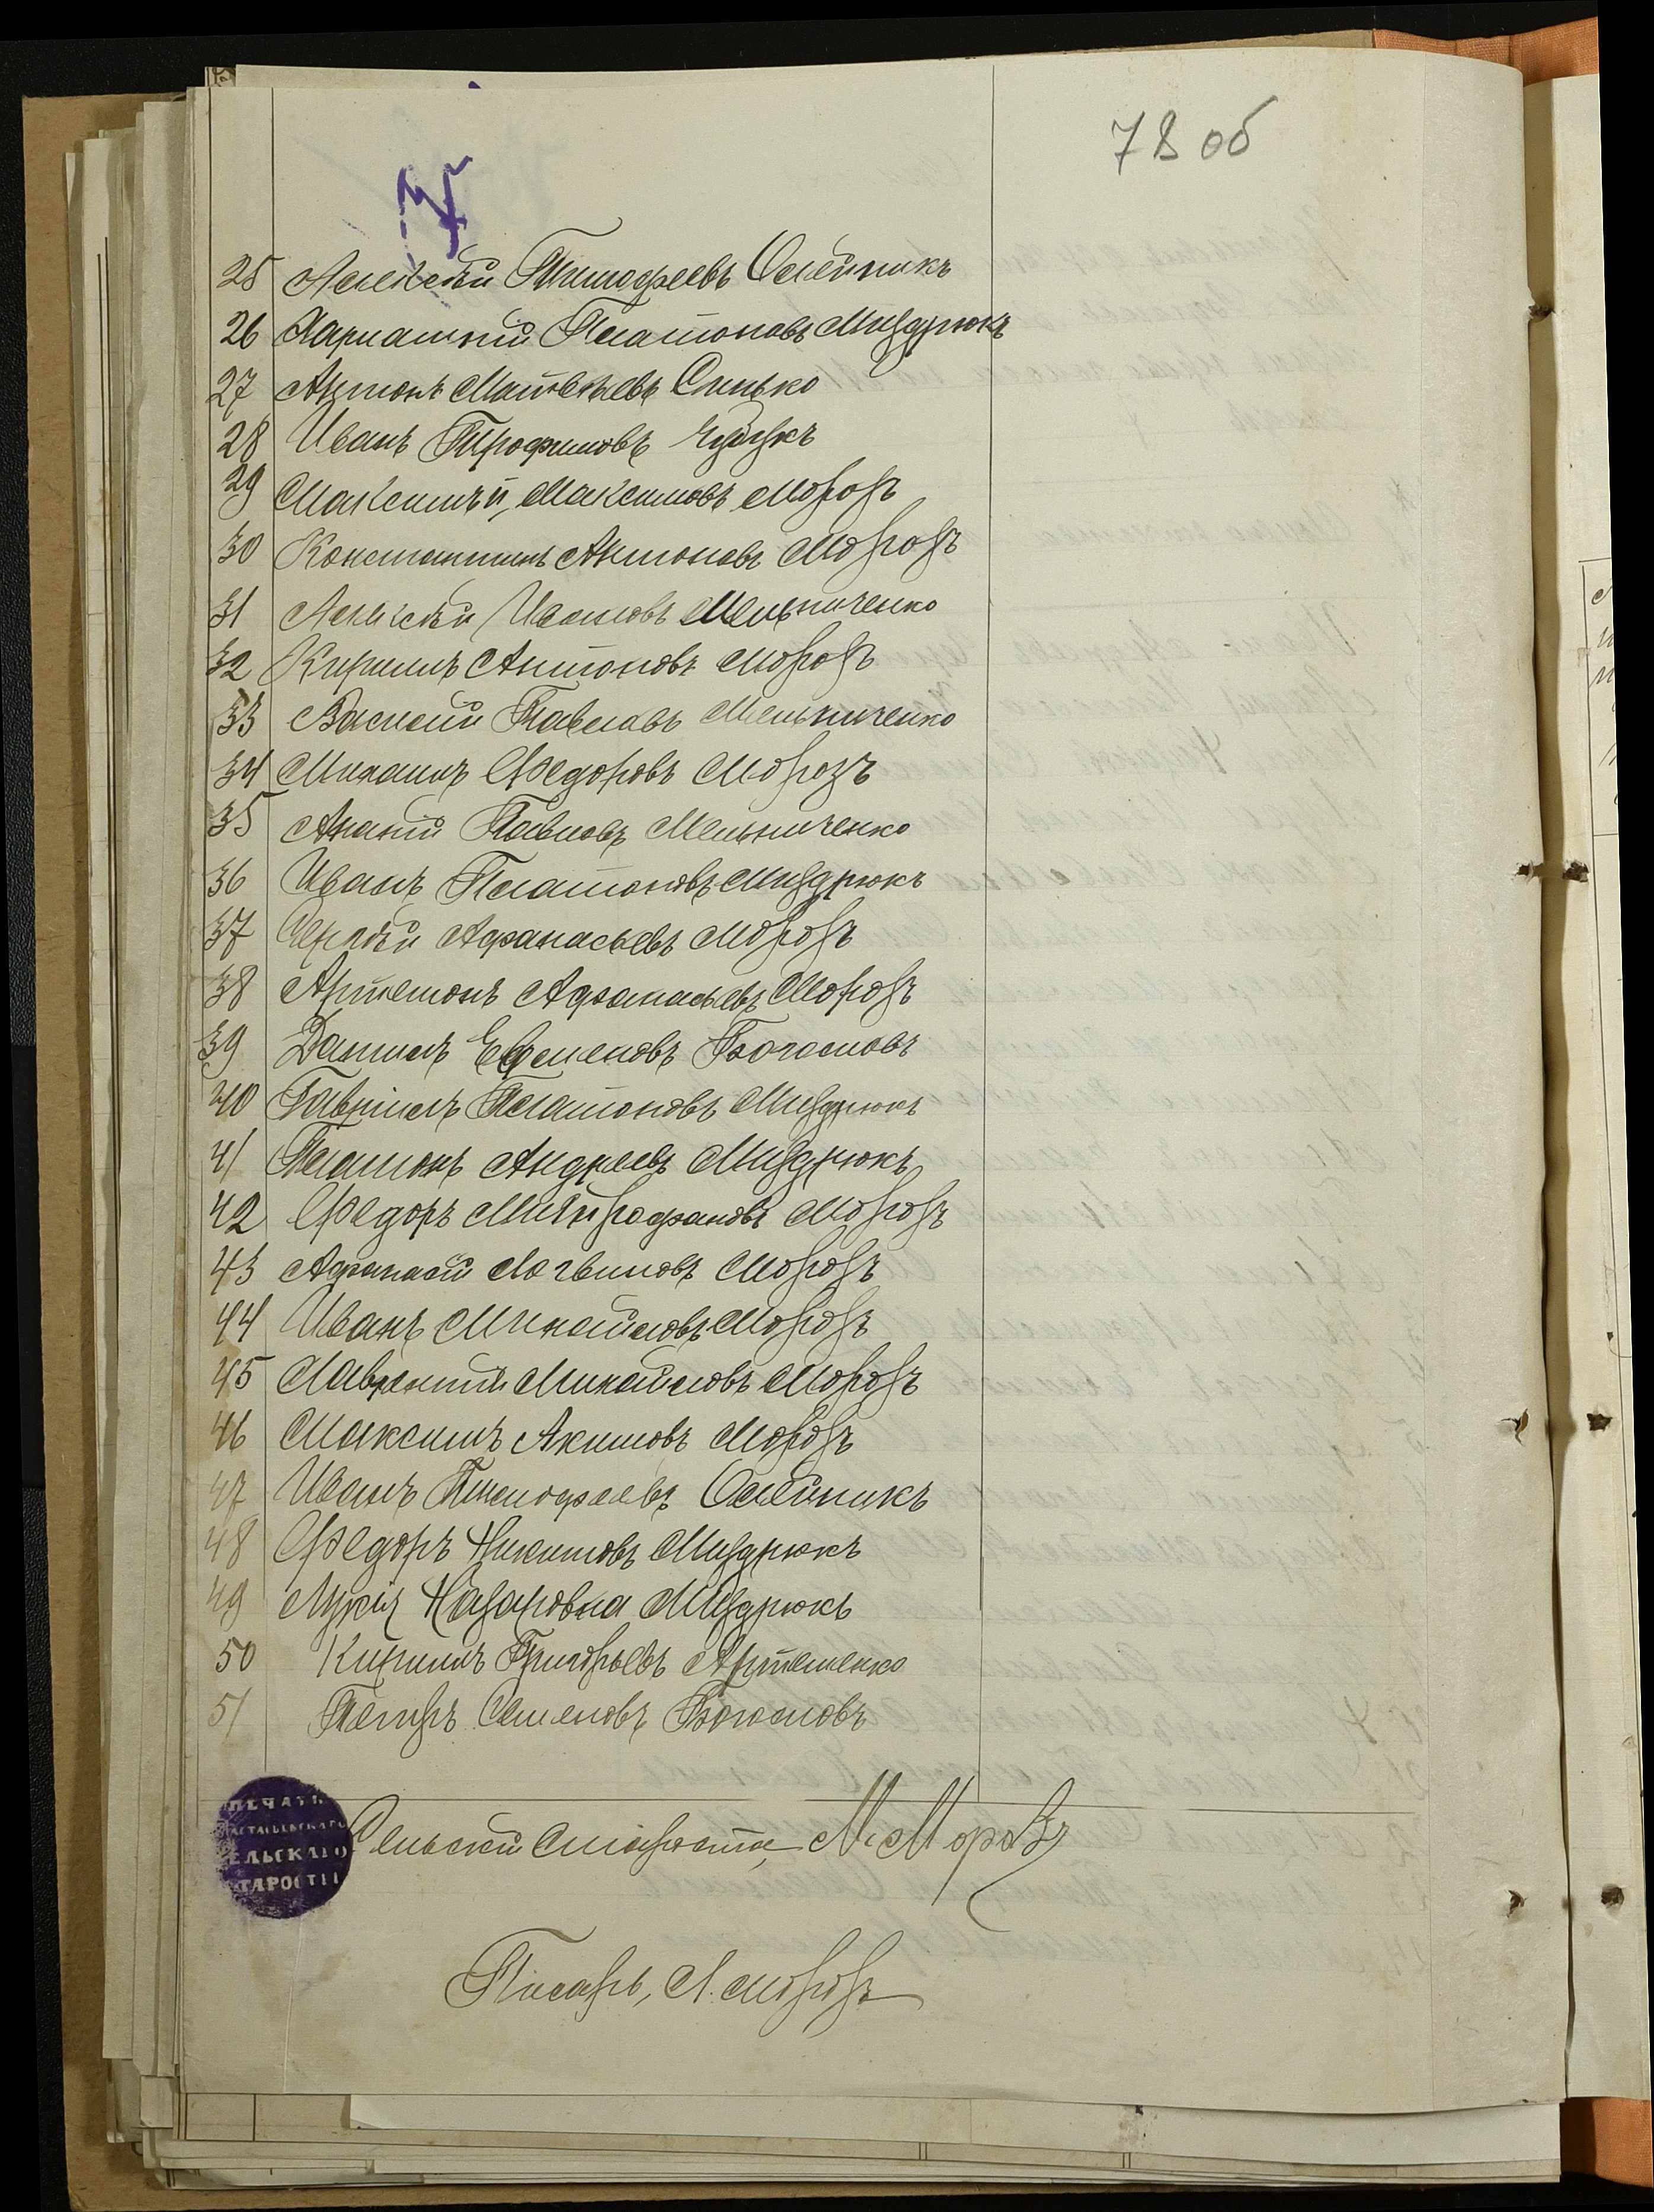 78 об
25 Алексѣй Тимофеевъ Олейникъ
26 Харлампий Платоновъ Миздрюкъ
27 Антонъ Матвѣевъ Синько
28 Иванъ Трофимовъ
29 Максимъ Максимовъ Морозъ
30 Константинъ Антоновъ Морозъ
31 Алексѣй Ивановъ Мельниченко
32 Кирилъ Антоновъ Морозъ
33 Василий Павловъ Мельниченко
34 Михаилъ Федоровъ Морозъ
35 Ананий Павловъ Мельниченко
36 Иванъ Платоновъ Миздрюкъ
37 Сергѣй Афанасьевъ Морозъ
38 Артемонъ Афанасьевъ Морозъ
39 Данилъ Евсменовъ Богословъ
40 Гавриилъ Платоновъ Миздрюкъ
41 Платонъ Андреевъ Миздрюкъ
42 Федоръ Митрофановъ Морозъ
43 Афанасий Логвиновъ Морозъ
44 Иванъ Михайловъ Морозъ
45 Лаврентий Михайловъ Морозъ
46 Максимъ Акимовъ Морозъ
47 Иванъ Тимофеевъ Олейникъ
48 Федоръ Никитовъ Миздрюкъ
49 Лукія Назаровна Миздрюкъ
50 Кирилъ Григорьевъ Артеменко
51 Петръ Семеновъ Богословъ
ПЕЧАТЬ
СЕЛЬСКАГО
СТАРОСТЫ
Сельский Староста М. Морозъ
Писарь, Л. Морозъ